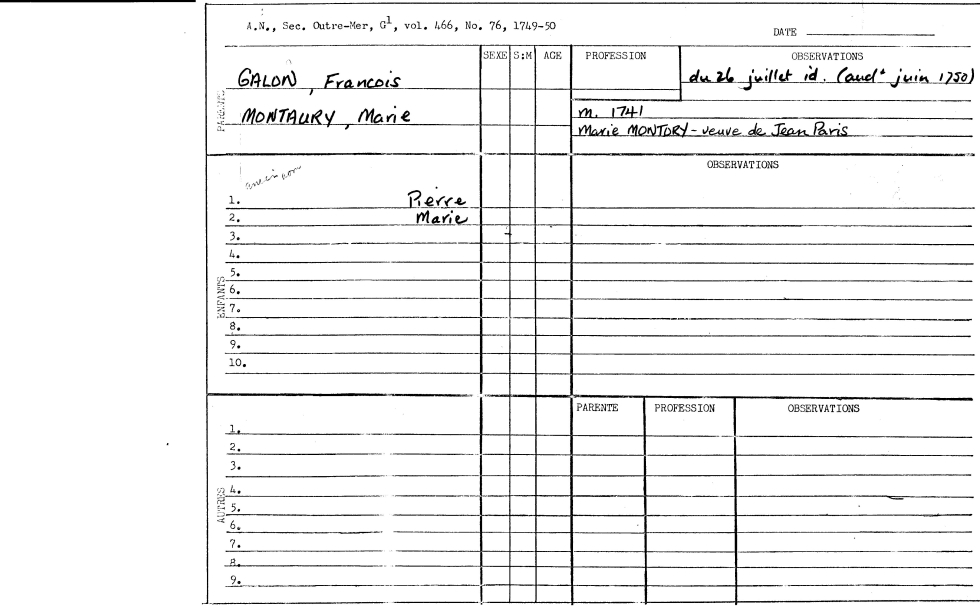 A.N., Sec. Outre-Mer, G1, vol. 466, No. 76, 1749-50
DATE
SEXE S:M AGE PROFESSION OBSERVATIONS
PARENTS
GALON, Francois du 26 juillet id. (audt juin 1750)
MONTAURY, Marie m. 1741
Marie MONTORY - veuve de Jean Paris
OBSERVATIONS
ENFANTS
1. Pierre
2. Marie
3.
4.
5.
6.
7.
8.
9.
10.
PARENTE PROFESSION OBSERVATIONS
AUTRES
1.
2.
3.
4.
5.
6.
7.
8.
9.